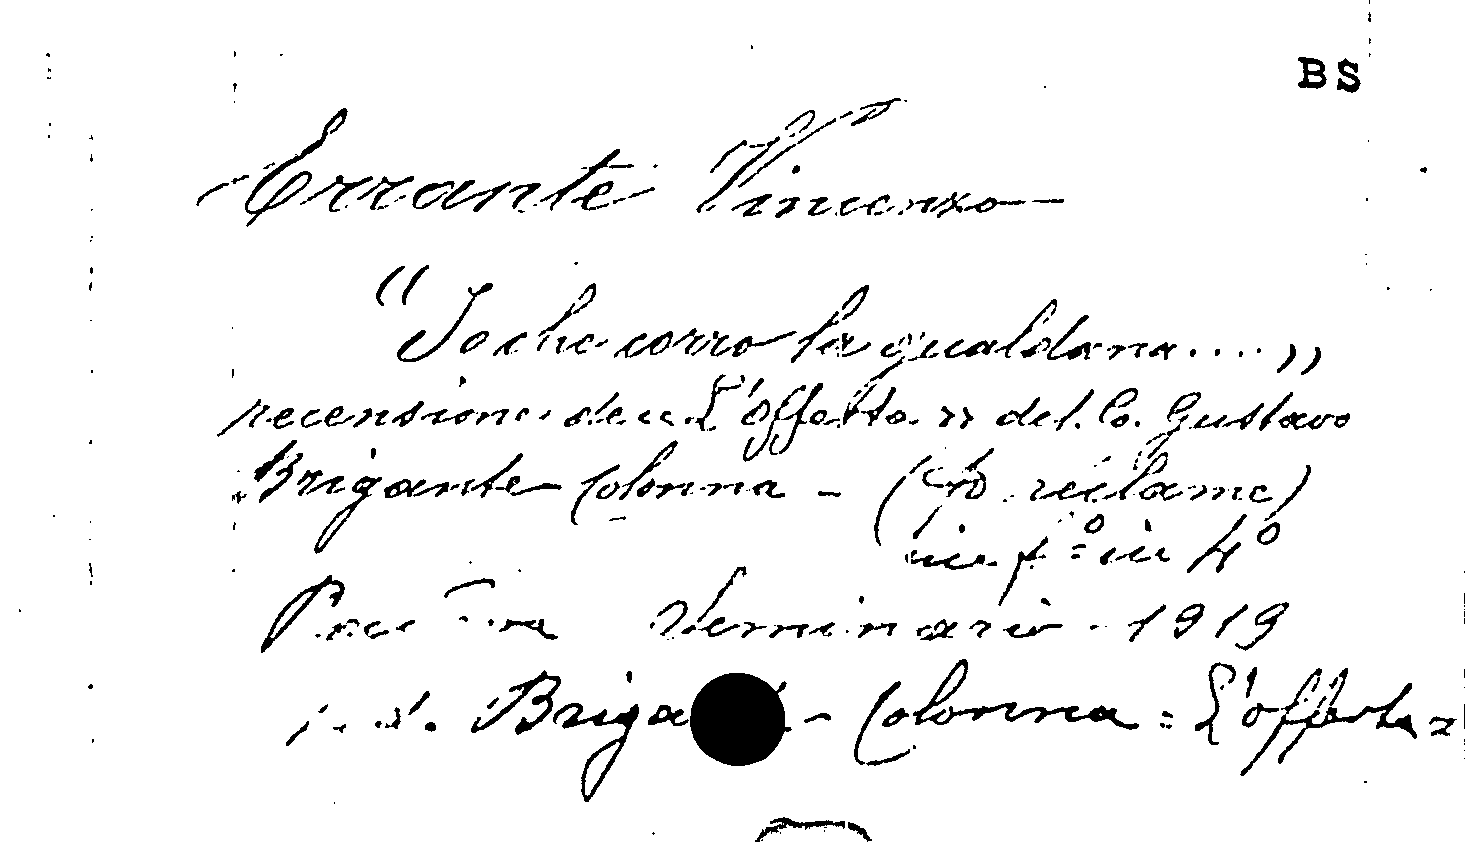 BS
Errante Vincenzo
"Io che corro la gualdana....,,
recensione de « L'offerta » del. Co. Gustavo
Brigante Colonna - ( reclame)
in f.º in 4º
Seminario - 1919
Briga - Colonna = L'offerta =